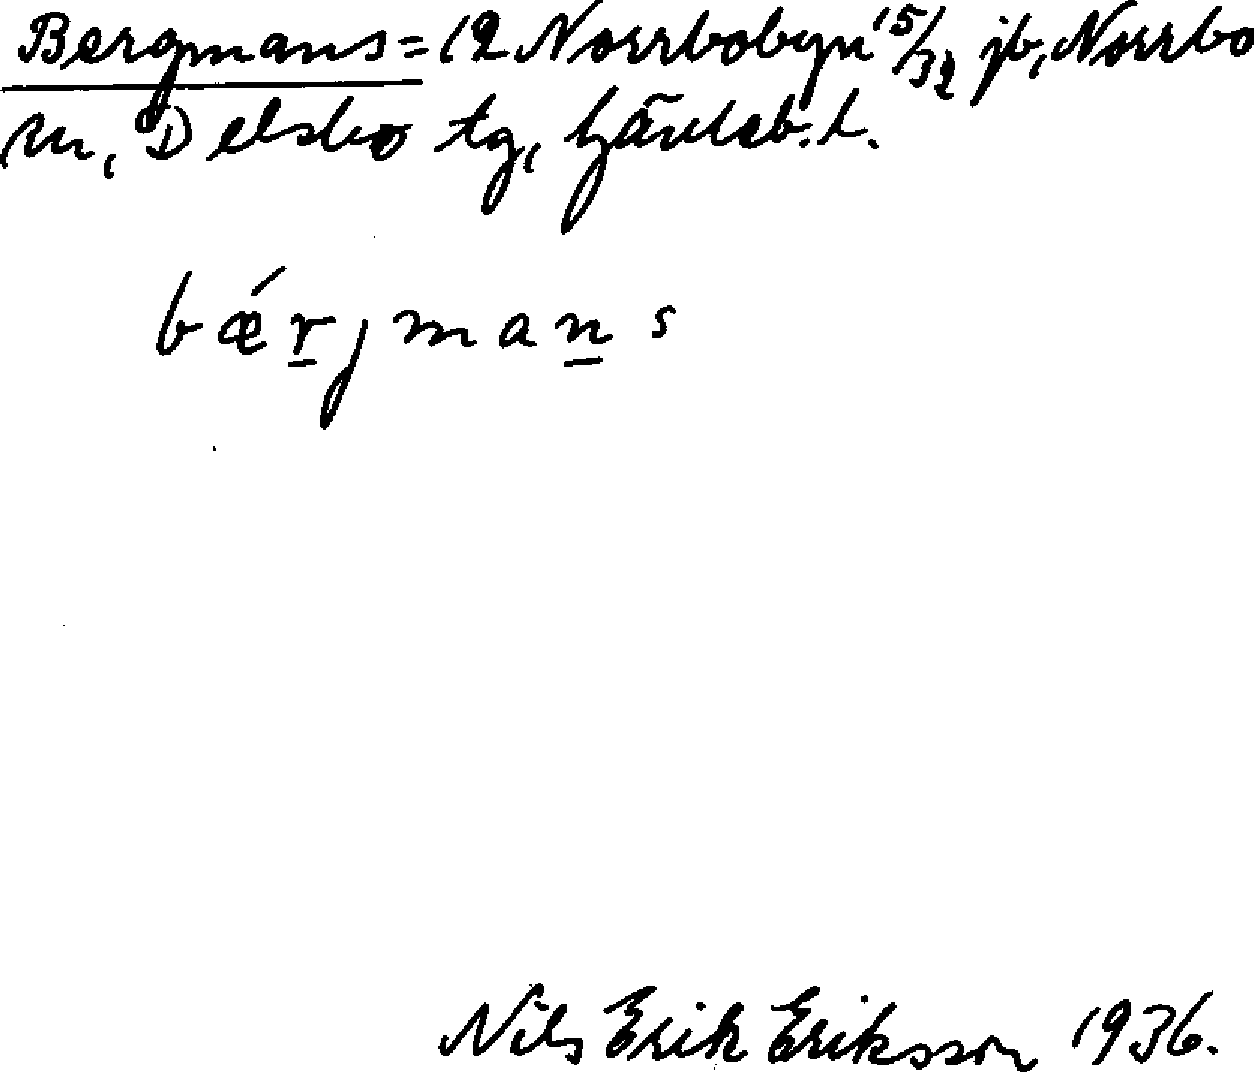 Bergmans = 12 Norrbobyn 15/32 jb, Norrbo
sn, Delsbo tg, Gävleb. l.
bǽr̲jman̲s
Nils Erik Eriksson 1936.